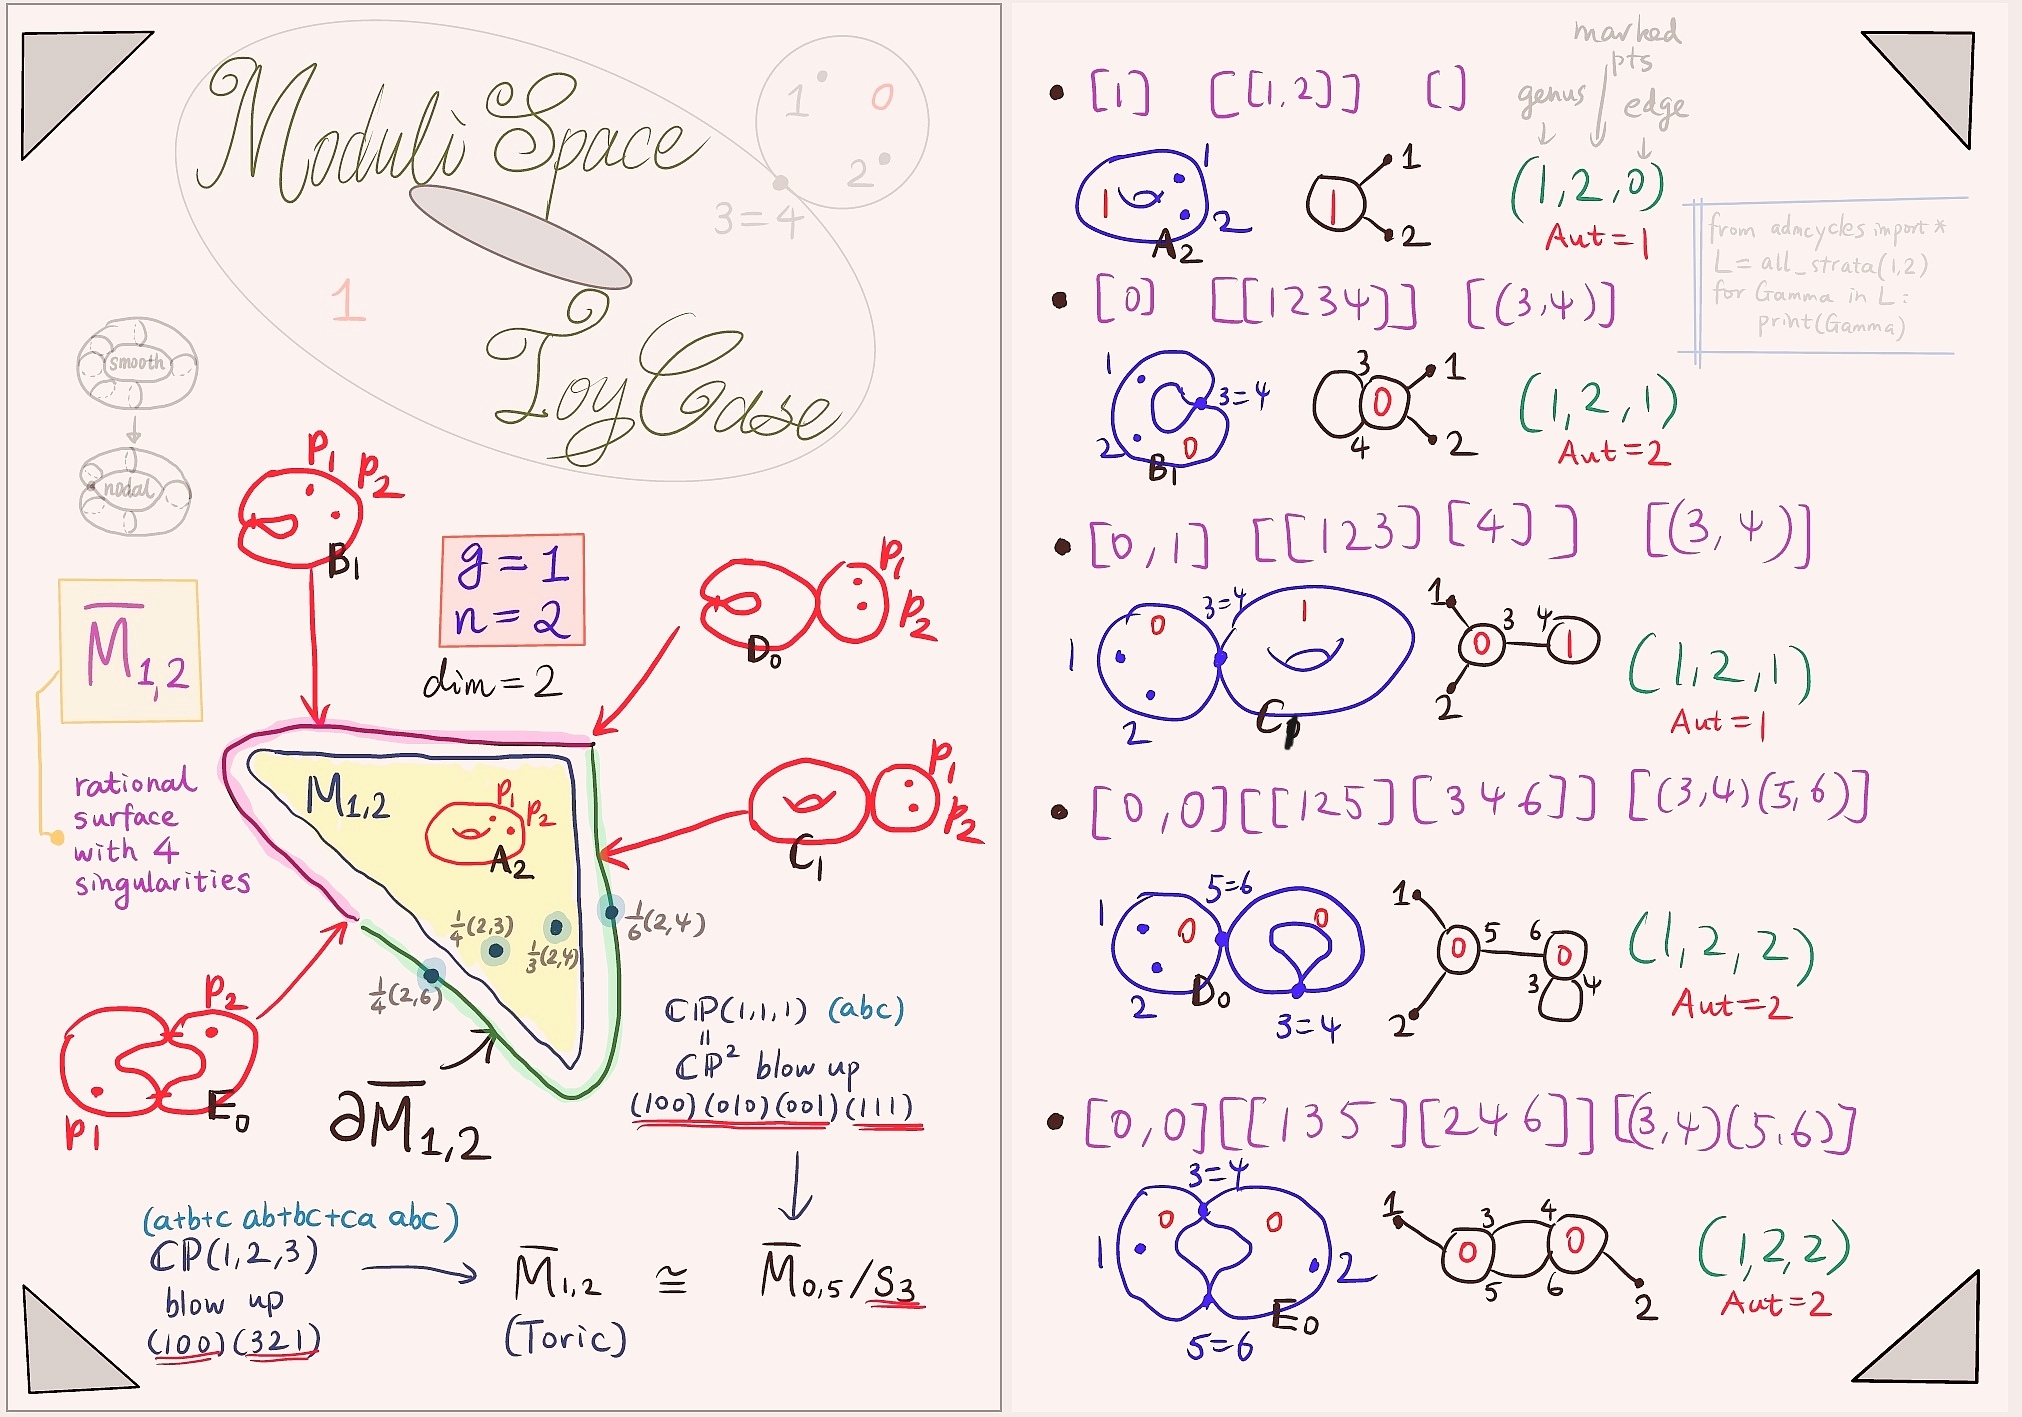 Moduli Space
Toy Case
1 0
2
3=4
1
smooth
nodal
P₁ P₂
B₁
g = 1
n = 2
dim = 2
P₁
P₂
D₀
M̅₁,₂
rational
surface
with 4
singularities
M₁,₂
P₁ P₂
A₂
P₁
P₂
C₁
¼(2,3)
⅓(2,4)
⅙(2,4)
¼(2,6)
P₂
P₁
E₀
∂M̅₁,₂
ℂℙ(1,1,1) (abc)
=
ℂℙ² blow up
(100)(010)(001)(111)
(a+b+c ab+bc+ca abc)
ℂℙ(1,2,3)
blow up
(100)(321)
M̅₁,₂ ≅ M̅₀,₅/S₃
(Toric)
marked
pts
genus
edge
• [1] [[1,2]] []
1 1 2 A₂
1 1 2
(1,2,0)
Aut=1
from admcycles import *
L = all_strata(1,2)
for Gamma in L:
print(Gamma)
• [0] [[1234]] [(3,4)]
1 2 3=4 0 B₁
3 4 0 1 2
(1,2,1)
Aut=2
• [0,1] [[123][4]] [(3,4)]
1 2 0 3=4 1 C₁
1 2 0 3 4 1
(1,2,1)
Aut=1
• [0,0][[125][346]] [(3,4)(5,6)]
1 2 0 5=6 0 D₀ 3=4
1 2 0 5 6 0 3 4
(1,2,2)
Aut=2
• [0,0][[135][246]][(3,4)(5,6)]
3=4
1 0 0 2 E₀
5=6
1 0 3 5 4 6 0 2
(1,2,2)
Aut=2